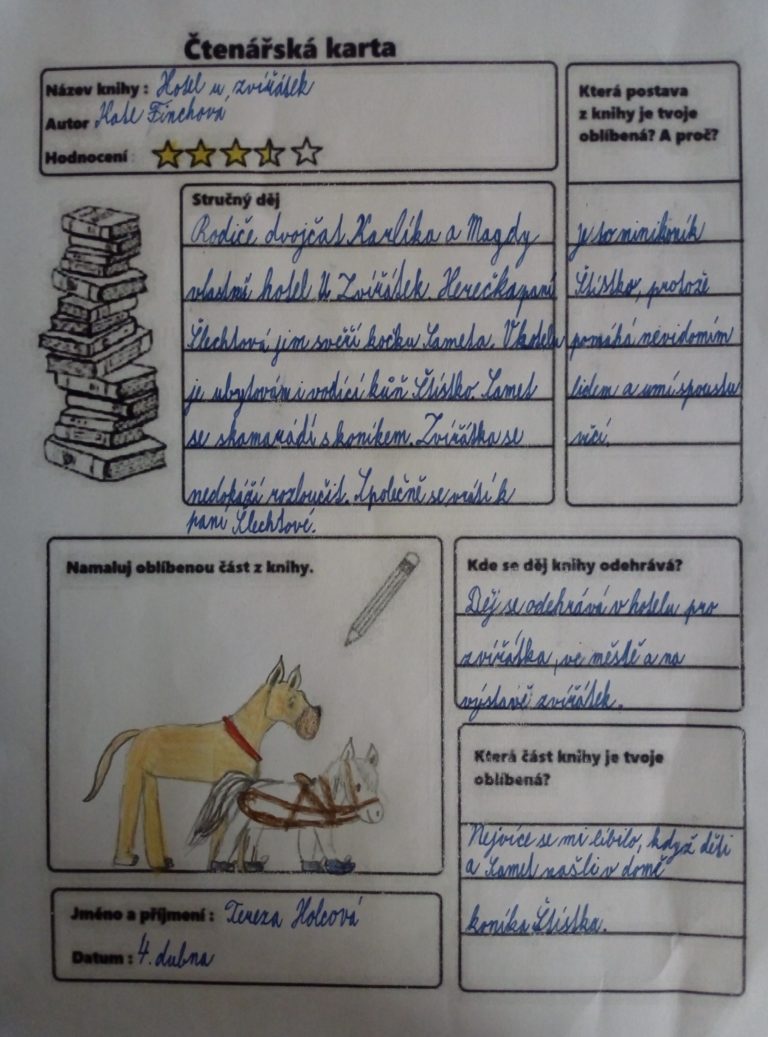 Čtenářská karta
Název knihy : Hotel u zvířátek
Autor Kate Finchová
Hodnocení :
Která postava
z knihy je tvoje
oblíbená? A proč?
je to minikoník
Štístko, protože
pomáhá nevidomím
lidem a umí spoustu
věcí.
Stručný děj
Rodiče dvojčat Karlíka a Magdy
vlastní hotel U Zvířátek. Herečka paní
Šlechtová jim svěří kočku Sameta. V hotelu
je ubytovámi vodící kůň Štístko. Samet
se skamarádí s koníkem. Zvířátka se
nedokáží rozloučit. Společně se vrátí k
paní Šlechtové.
Namaluj oblíbenou část z knihy.
Kde se děj knihy odehrává?
Děj se odehrává v hotelu pro
zvířátka, ve městě a na
výstavě zvířátek.
Která část knihy je tvoje
oblíbená?
Nejvíce se mi líbilo, když děti
a Samet našli v domě
koníka Štístka.
Jméno a příjmení : Tereza Holcová
Datum : 4. dubna